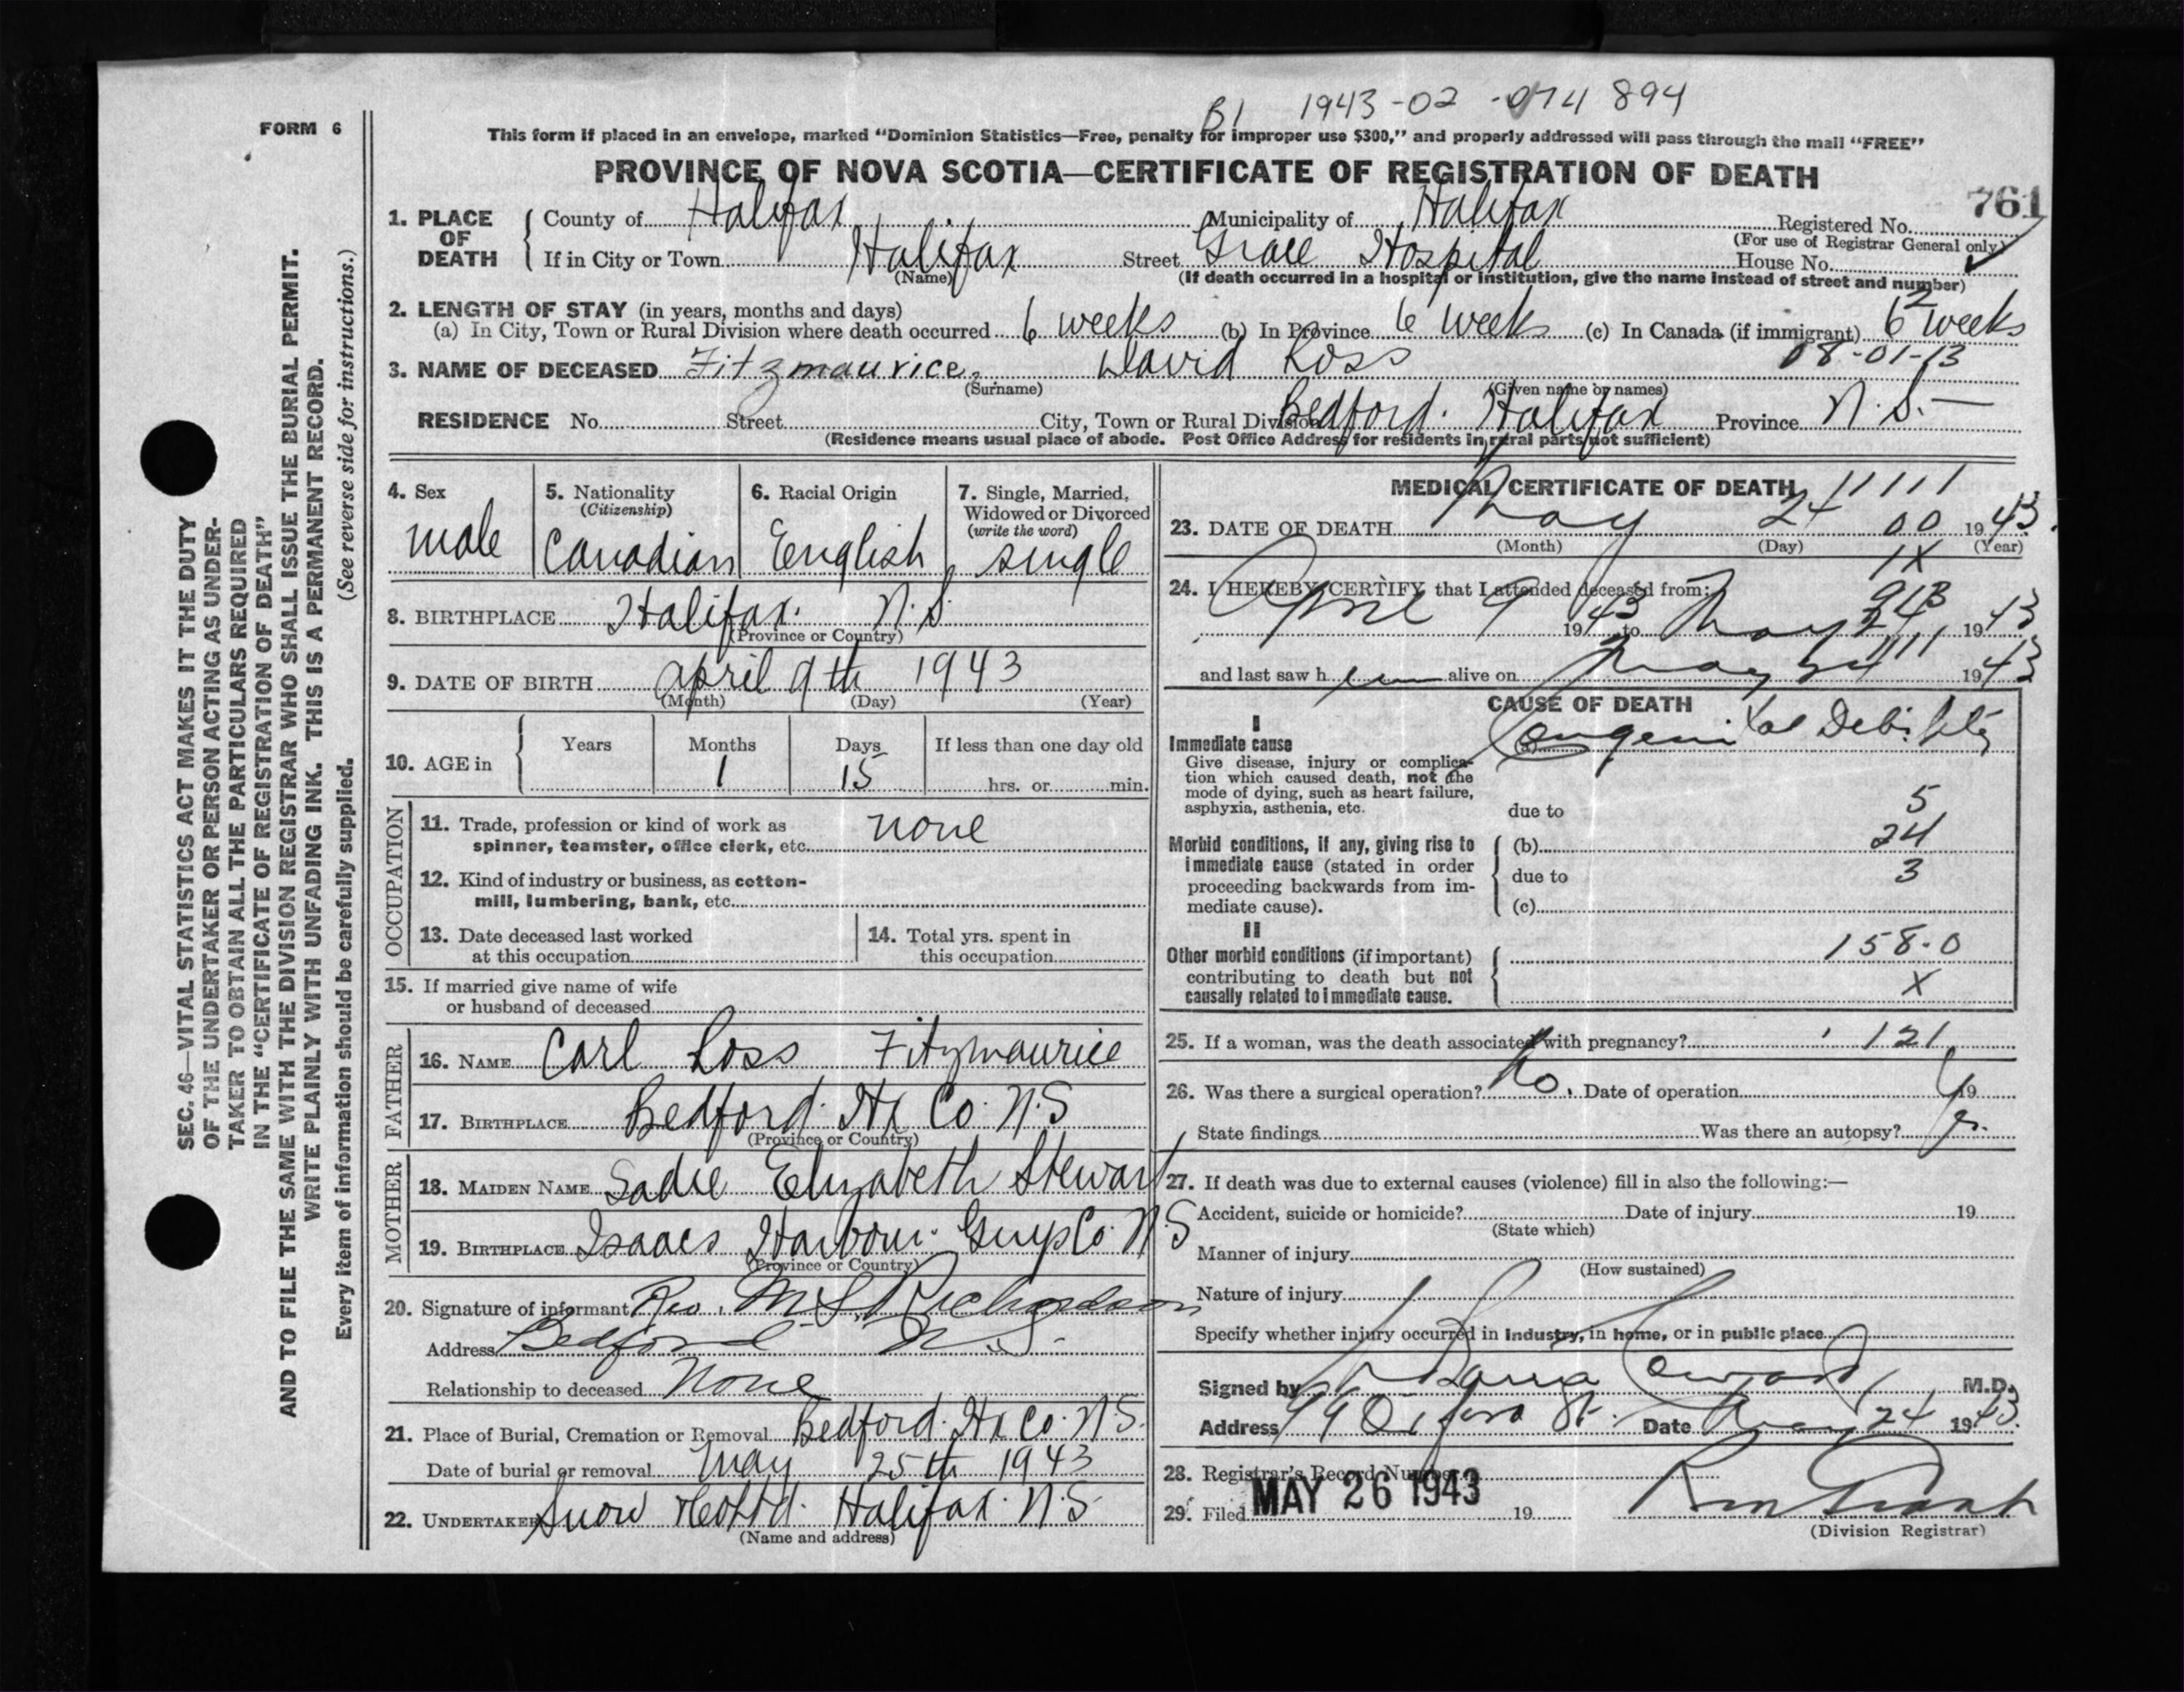 B1 1943-02-074894
FORM 6
This form if placed in an envelope, marked “Dominion Statistics—Free, penalty for improper use $300,” and properly addressed will pass through the mail “FREE”
PROVINCE OF NOVA SCOTIA—CERTIFICATE OF REGISTRATION OF DEATH
761
1. PLACE OF DEATH County of Halifax Municipality of Halifax Registered No.
(For use of Registrar General only)
If in City or Town Halifax Street Grace Hospital House No.
(Name) (If death occurred in a hospital or institution, give the name instead of street and number)
2. LENGTH OF STAY (in years, months and days) 2
(a) In City, Town or Rural Division where death occurred 6 weeks (b) In Province 6 weeks (c) In Canada (if immigrant) 6 weeks
3. NAME OF DECEASED Fitzmaurice, David Ross 08-01-13
(Surname) (Given name or names)
RESIDENCE No. Street City, Town or Rural Division Bedford. Halifax Province N.S.—
(Residence means usual place of abode. Post Office Address for residents in rural parts not sufficient)
4. Sex male
5. Nationality (Citizenship) Canadian
6. Racial Origin English
7. Single, Married, Widowed or Divorced (write the word) single
8. BIRTHPLACE Halifax. N.S.
(Province or Country)
9. DATE OF BIRTH april 9th 1943
(Month) (Day) (Year)
10. AGE in Years Months Days If less than one day old
1 15 hrs. or min.
OCCUPATION
11. Trade, profession or kind of work as spinner, teamster, office clerk, etc. none
12. Kind of industry or business, as cotton-mill, lumbering, bank, etc.
13. Date deceased last worked at this occupation
14. Total yrs. spent in this occupation
15. If married give name of wife or husband of deceased
FATHER
16. NAME Carl Ross Fitzmaurice
17. BIRTHPLACE Bedford. Hx Co. N.S
(Province or Country)
MOTHER
18. MAIDEN NAME Sadie Elizabeth Stewart
19. BIRTHPLACE Isaacs Harbour. Guys Co. N.S
(Province or Country)
20. Signature of informant Rev. M S Richardson
Address Bedford N.S.
Relationship to deceased None
21. Place of Burial, Cremation or Removal Bedford. Hx Co. N.S.
Date of burial or removal May 25th 1943
22. UNDERTAKER Snow & Co Ltd. Halifax. N.S.
(Name and address)
MEDICAL CERTIFICATE OF DEATH 11111
23. DATE OF DEATH May 24 00 1943.
(Month) (Day) (Year)
1X
24. I HEREBY CERTIFY that I attended deceased from:
913
April 9 1943 to May 24 1943
111
and last saw him alive on May 24 1943
CAUSE OF DEATH
I
Immediate cause (a) Congenital Debility
Give disease, injury or complication which caused death, not the mode of dying, such as heart failure, asphyxia, asthenia, etc.
due to 5
Morbid conditions, if any, giving rise to immediate cause (stated in order proceeding backwards from immediate cause).
(b) 24
due to 3
(c)
II
Other morbid conditions (if important) contributing to death but not causally related to immediate cause.
158.0
X
25. If a woman, was the death associated with pregnancy? 121
26. Was there a surgical operation? No. Date of operation 19
State findings Was there an autopsy?
27. If death was due to external causes (violence) fill in also the following:—
Accident, suicide or homicide? Date of injury 19
(State which)
Manner of injury
(How sustained)
Nature of injury
Specify whether injury occurred in industry, in home, or in public place
Signed by M.D.
Address Oxford St. Date May 24 1943.
28. Registrar's Record Number
29. Filed MAY 26 1943 19
(Division Registrar)
SEC. 46—VITAL STATISTICS ACT MAKES IT THE DUTY
OF THE UNDERTAKER OR PERSON ACTING AS UNDER-
TAKER TO OBTAIN ALL THE PARTICULARS REQUIRED
IN THE “CERTIFICATE OF REGISTRATION OF DEATH”
AND TO FILE THE SAME WITH THE DIVISION REGISTRAR WHO SHALL ISSUE THE BURIAL PERMIT.
WRITE PLAINLY WITH UNFADING INK. THIS IS A PERMANENT RECORD.
Every item of information should be carefully supplied. (See reverse side for instructions.)